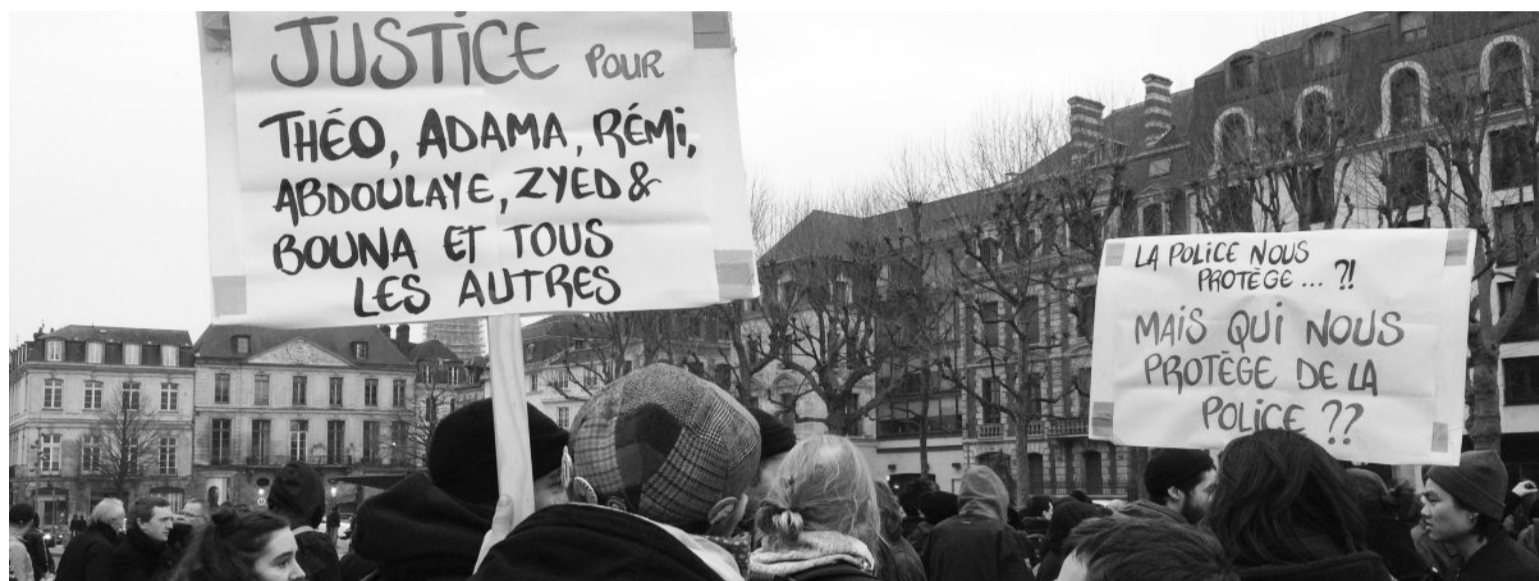 JUSTICE POUR
THÉO, ADAMA, RÉMI,
ABDOULAYE, ZYED &
BOUNA ET TOUS
LES AUTRES
LA POLICE NOUS
PROTÈGE... ?!
MAIS QUI NOUS
PROTÈGE DE LA
POLICE ??